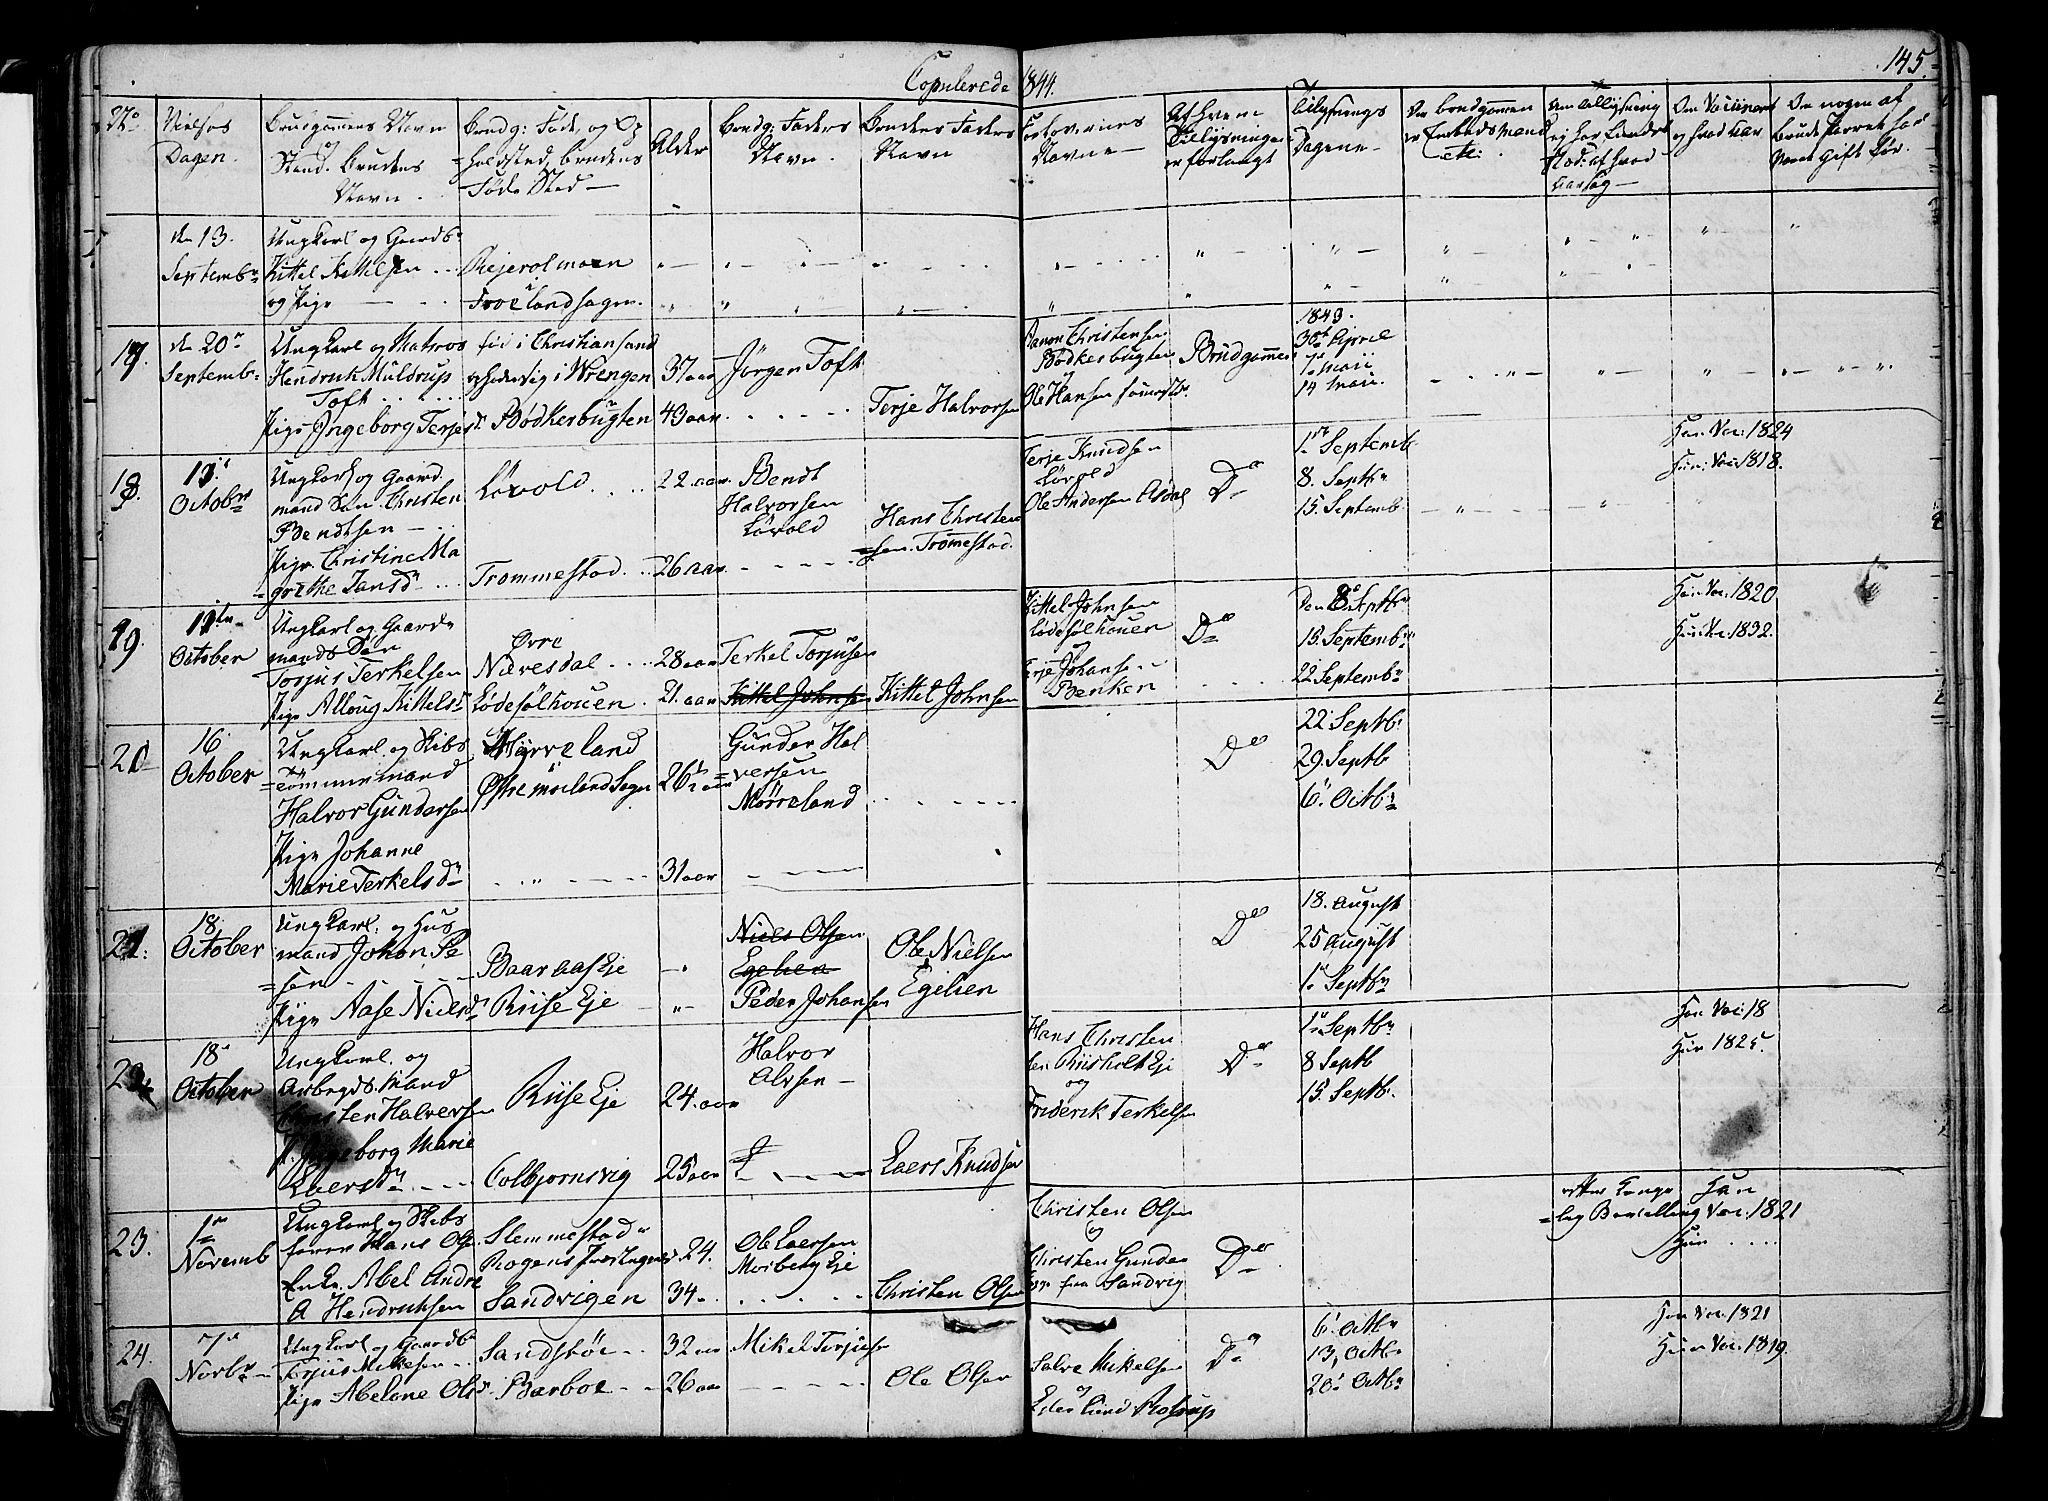 145.
Copulerede 1844.
No
Vielses Dagen.
Brudgommens Navn og Stand. Brudens Navn.
Brudg: Føde, og Opholdsted, brudens Føde Sted
Alder
Brudg: Faders Navn.
Brudens Faders Navn
Forlovernes Navne
Af hvem Tillysningen er forlangt
Tillysnings Dagene
Om brudgommen er Embedsmand etc:
Om Vaccineret og hvad Aar
Om nogen af Brude Parret har været Gift før.
den 13. Septembr
Ungkarl og Gaardbr
Kittel Kittelsen
og Pige
Froelandsogn.
17. den 20de Septembr
Ungkarl og Matros
Hendrik Müldrup
Toft
Pige Ingeborg Terjesdr
fød i Christiansand
opholdersig i Wrengen
Bødkerbugten
37 aar
43 aar
Jørgen Toft
Terje Halvorsen
Christensen
Bødkerbugten
og
Ole Hansen
Brudgommen
1843.
30te April
7de Maii
14 Maii.
18. 11te Octobr
Ungkarl og Gaard
mand Søn Christen
Bendtsen
Pige Christine Ma
grethe Hansdr
Løvold
Trommestad
22 aar
26 aar
Bendt
Halvorsen
Løvold
Hans Christen
sen Tromestad.
Terje Knudsen
Løvold
Ole Andersen Asdal
Do
1te Septemb.
8. Septbr
15. Septemb.
Han Vac: 1824
Hun: Vac: 1818.
19. 11te October
Ungkarl og Gaard
mands Søn
Torjus Terkelsen
Pige Alloug Kittelsdr
Øvre
Nævesdal
Lødesølhouen
28 aar
21 aar
Terkel Torjusen
Kittel Johnsen
Kittel Johnsen
Kittel Johnsen
Lødesølhouen
og
Terje Johansen
Benken
Do
Den 8de Septbr
15 Septembr
22 Septembr
Han Vac: 1820
Hun Vac: 1832.
20 16 October
Ungkarl og Skibs
tømmermand
Halvor Gundersen
Pige Johanne
Marie Terkelsdr
Myrreland
Østre Moeland Sogn
26 aar
31 aar
Gunder Hal
versen
Mørreland
Do
22 Septb.
29. Septb
6. Octbr
21. 18 October
Ungkarl og Hus
mand Johan Pe
sen
Pige Aase Nielsdr
Baaraas Eje
Riise Eje
Niels Olsen
Egelien
Peder Johansen
Ole Nielsen
Egelien
Do
18. August
25 August
1te Septbr
22 18 October
Ungkarl og
Arbeydsmand
Christen Halversen
P. Ingeborg Marie
Laersdr
Riise Eje
Colbjørnsvig
24. aar
25 aar
Halvor
Alvsen
Laers Knudsen
Hans Christen
sen Riisholt Eje
og
Friderik Terkelsen
Do
1te Septbr
8 Septb
15. Septb.
Han Vac: 18
Hun 1825
23. 1te Novemb
Ungkarl og Skibs
fører Hans Olsen
Enke Abel Andre
a Hendriksen
Slemmestad
Sandvigen
24.
34
Ole Laersen
Morberg Eje
Christen Olsen
Christen Olsen
og
Christen Gunder
sen fra Sandvig
Do
efter Konge
lig Bevilling
Han
Vac: 1821
Hun
24. 7de Novbr
Ungkarl og Gaardbr
Terjus Mikelsen
Pige Abelone Olsdr
Sandstøe
Barboe
32 aar
26 aar
Mikel Terjusen
Ole Olsen
Salve Mikelsen
og
Do
6. Octbr
13, Octbr
20 Octbr
Han Vac: 1821
Hun Vac: 1819.